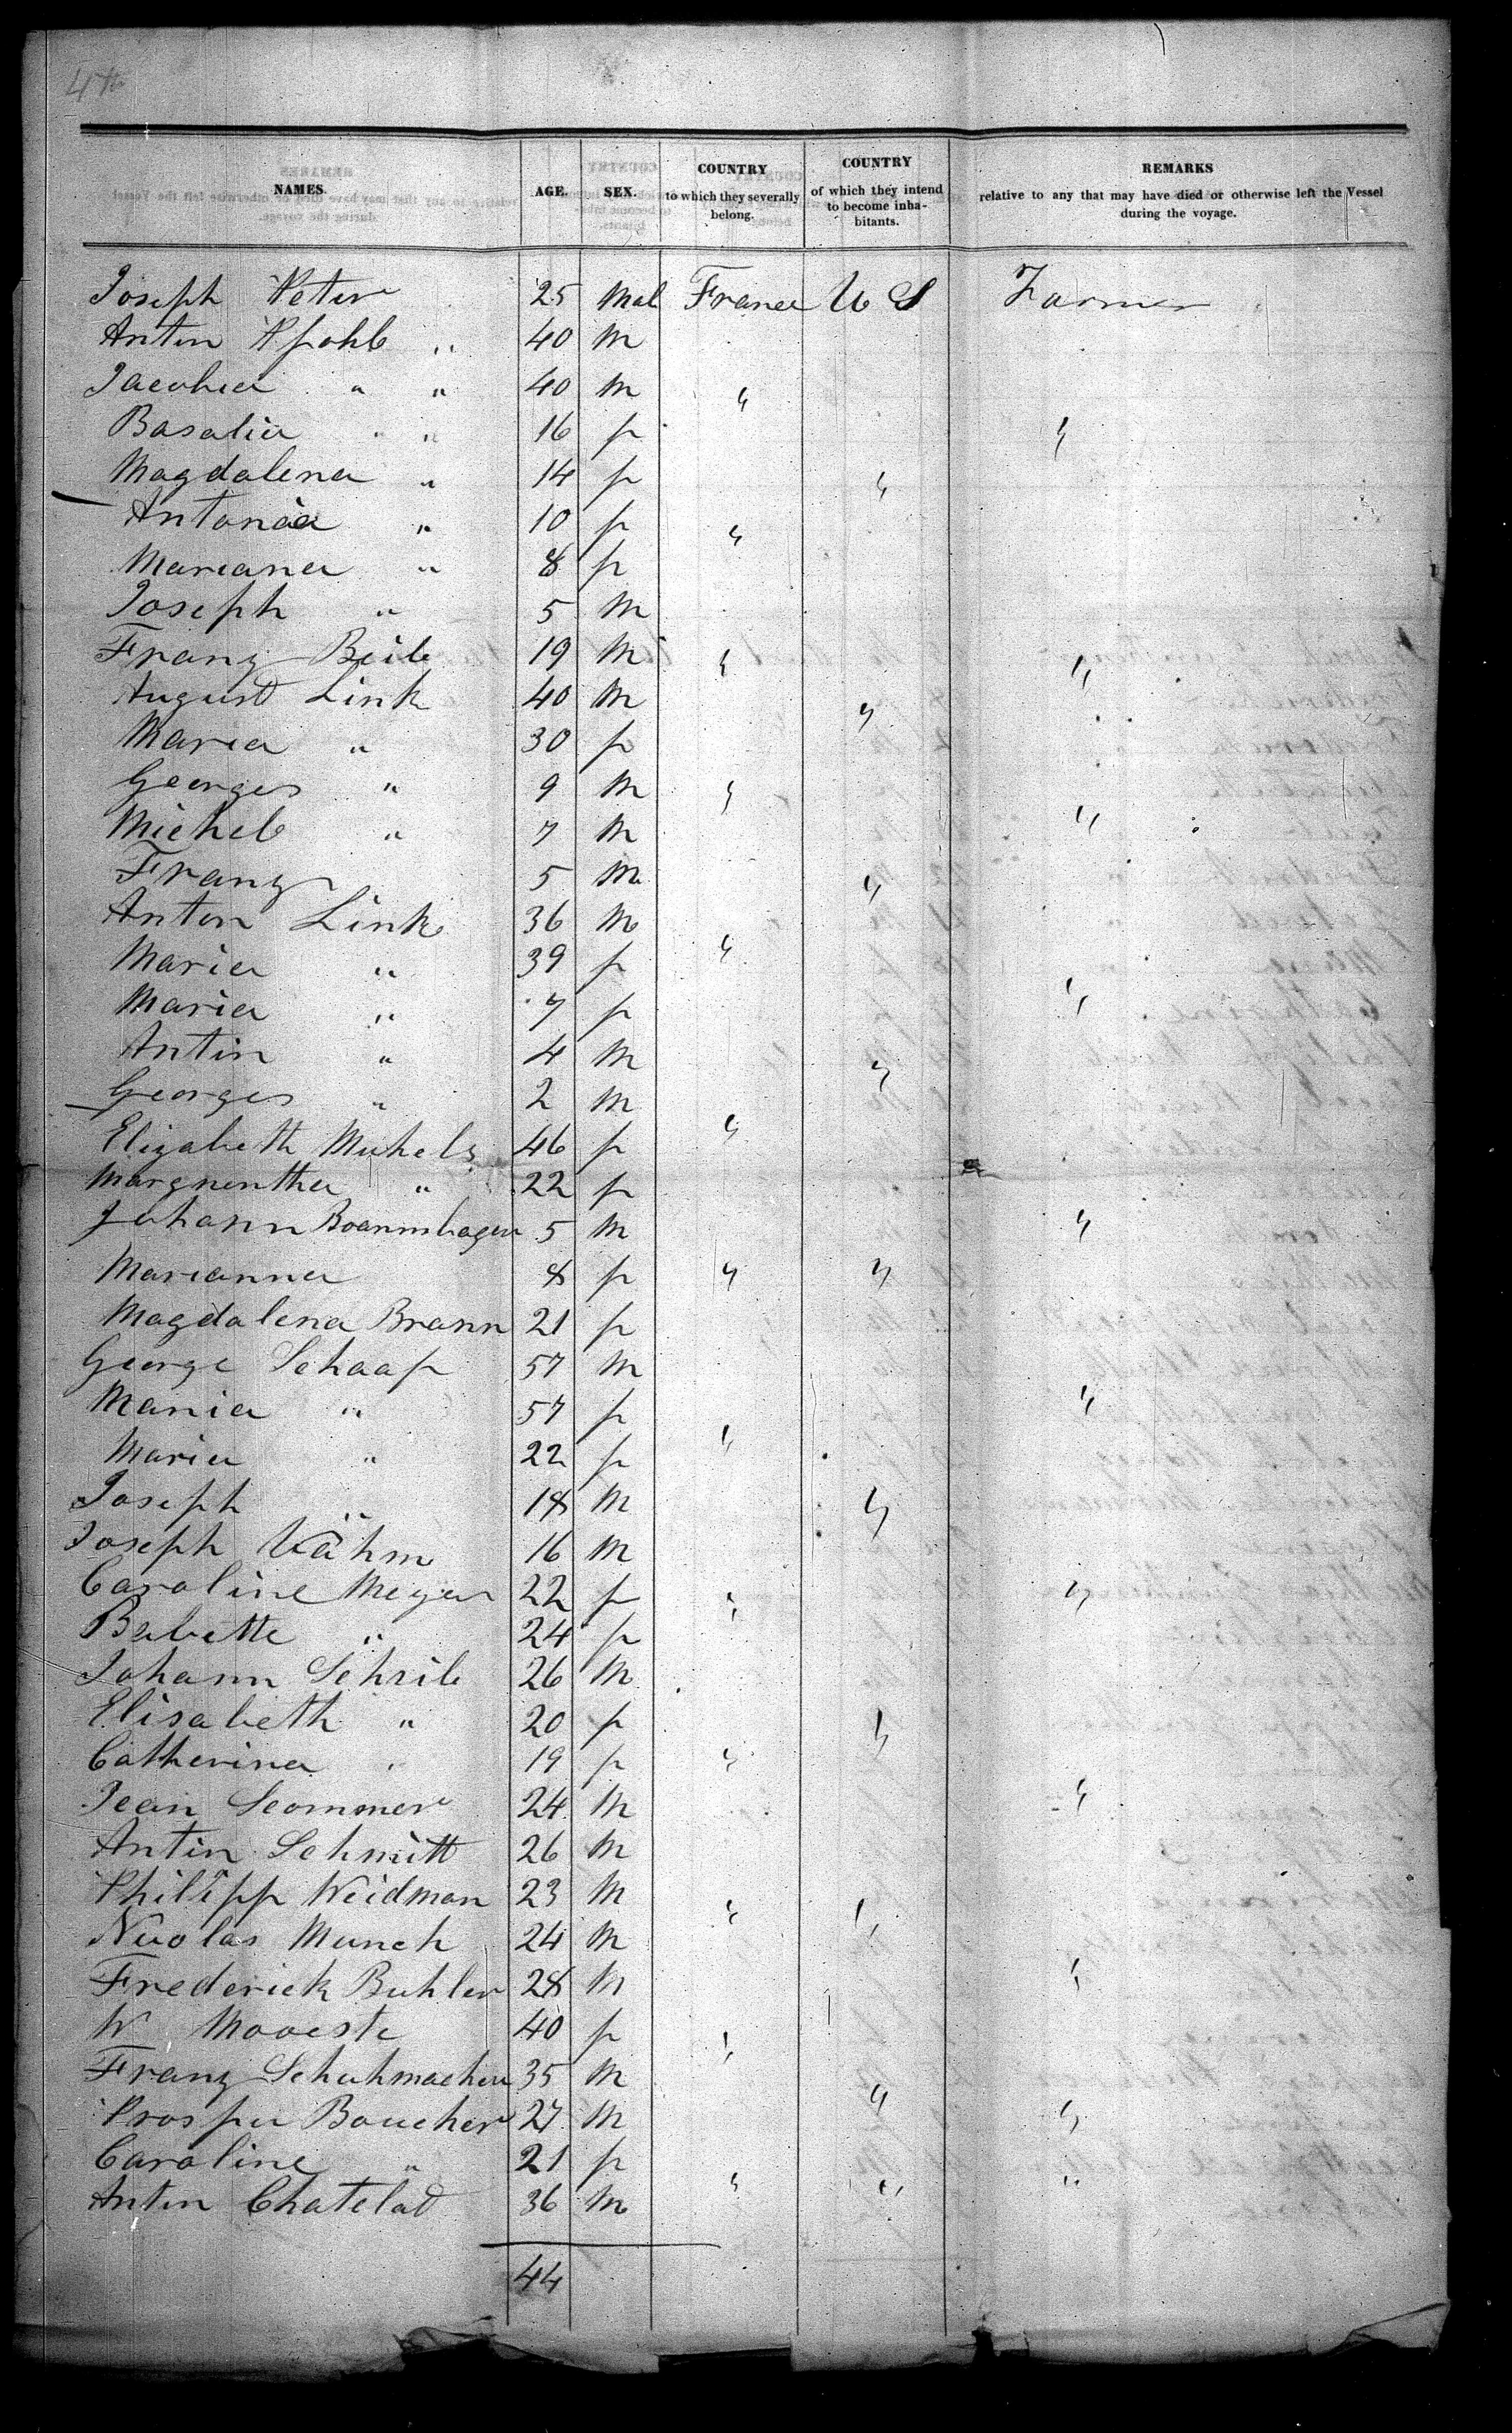 4th
NAMES. AGE. SEX. COUNTRY to which they severally belong. COUNTRY of which they intend to become inhabitants. REMARKS relative to any that may have died or otherwise left the Vessel during the voyage.
Joseph Peter 25 Mal France U S Farmer
Anton Pfohl " 40 M
Jacobea " " 40 M "
Basalia " " 16 f "
Magdalena " 14 f "
Antonia " 10 f "
Mariana " 8 f
Joseph " 5 M
Franz Beib 19 M " "
August Link 40 M "
Maria " 30 f
Georges " 9 M "
Michel " 7 M "
Franz 5 M "
Anton Link 36 M
Maria " 39 f "
Maria " 7 f "
Antin " 4 M "
Georges " 2 M
Elizabeth Muhels 46 f "
" 22 f
Johann 5 M "
Marianna 8 f " "
Magdalena Brann 21 f
George Schaaf 57 M
Maria " 57 f "
Maria " 22 f "
Joseph " 18 M "
Joseph 16 M
Caroline Meyer 22 f " "
Babette " 24 f
Johann Schrib 26 M
Elisabeth " 20 f "
Catherina " 19 f "
Jean Sommer 24 M "
Antin Schmitt 26 M
Philipp Weidman 23 M " "
Nicolas Munch 24 M
Frederick Buhler 28 M "
W 40 f "
Franz Schuhmacher 35 M
Prosper Boucher 27 M " "
Caroline " 21 f
Anton Chatelat 36 M " " "
44